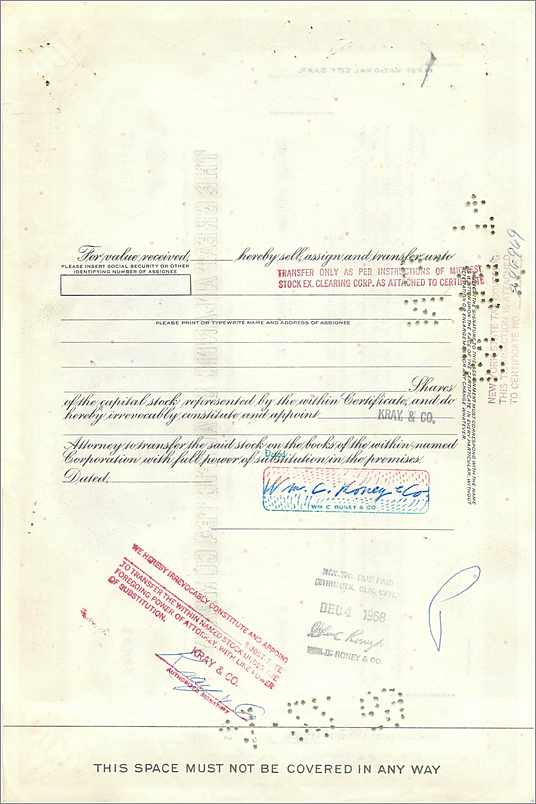 For value received, hereby sell, assign and transfer unto
PLEASE INSERT SOCIAL SECURITY OR OTHER
IDENTIFYING NUMBER OF ASSIGNEE
TRANSFER ONLY AS PER INSTRUCTIONS OF MIDWEST
STOCK EX. CLEARING CORP. AS ATTACHED TO CERTIFICATE
PLEASE PRINT OR TYPEWRITE NAME AND ADDRESS OF ASSIGNEE
Shares
of the capital stock represented by the within Certificate, and do
hereby irrevocably constitute and appoint KRAY & CO.
Attorney to transfer the said stock on the books of the within named
Corporation with full power of substitution in the premises.
Dated
Dated
Wm. C. Roney & Co.
WM C RONEY & CO
NEW YORK STATE
TO CERTIFICATE NO
WE HEREBY IRREVOCABLY CONSTITUTE AND APPOINT
TO TRANSFER THE WITHIN NAMED STOCK UNDER THE
FOREGOING POWER OF ATTORNEY, WITH LIKE POWER
OF SUBSTITUTION.
KRAY & CO.
AUTHORIZED SIGNATURE
DEC 4 1968
RONEY & CO.
THIS SPACE MUST NOT BE COVERED IN ANY WAY